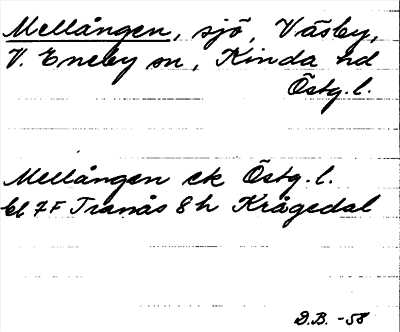 Mellången, sjö, Väsby,
V. Eneby sn, Kinda hd
Östg. l.
Mellången ek Östg. l.
bl 7F Tranås 8h Krågedal
D.B. -58